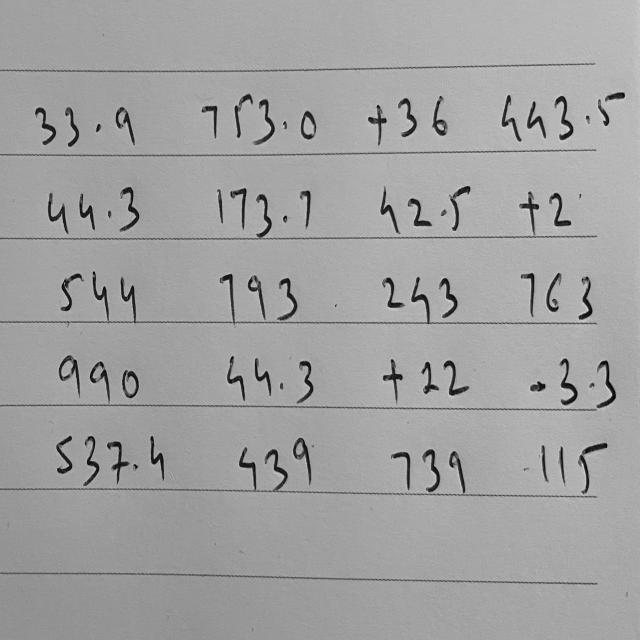 33.9 753.0 +36 443.5
44.3 173.7 42.5 +2
544 793 243 763
990 44.3 +22 -3.3
537.4 439 739 -115